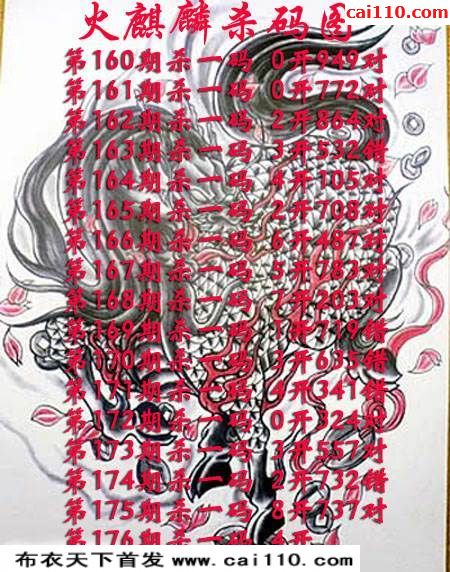 cai110.com
火麒麟杀码图
第160期杀一码 0开949对
第161期杀一码 0开772对
第162期杀一码 2开864对
第163期杀一码 3开532错
第164期杀一码 4开105对
第165期杀一码 2开708对
第166期杀一码 6开487对
第167期杀一码
第168期杀一码 7开203对
第169期杀一码 1开719错
第170期杀一码 3开635错
第171期杀一码 4开341错
第172期杀一码 0开324对
第173期杀一码 3开557对
第174期杀一码 2开732错
第175期杀一码 8开737对
第176期杀一码 4开
布衣天下首发 www.cai110.com